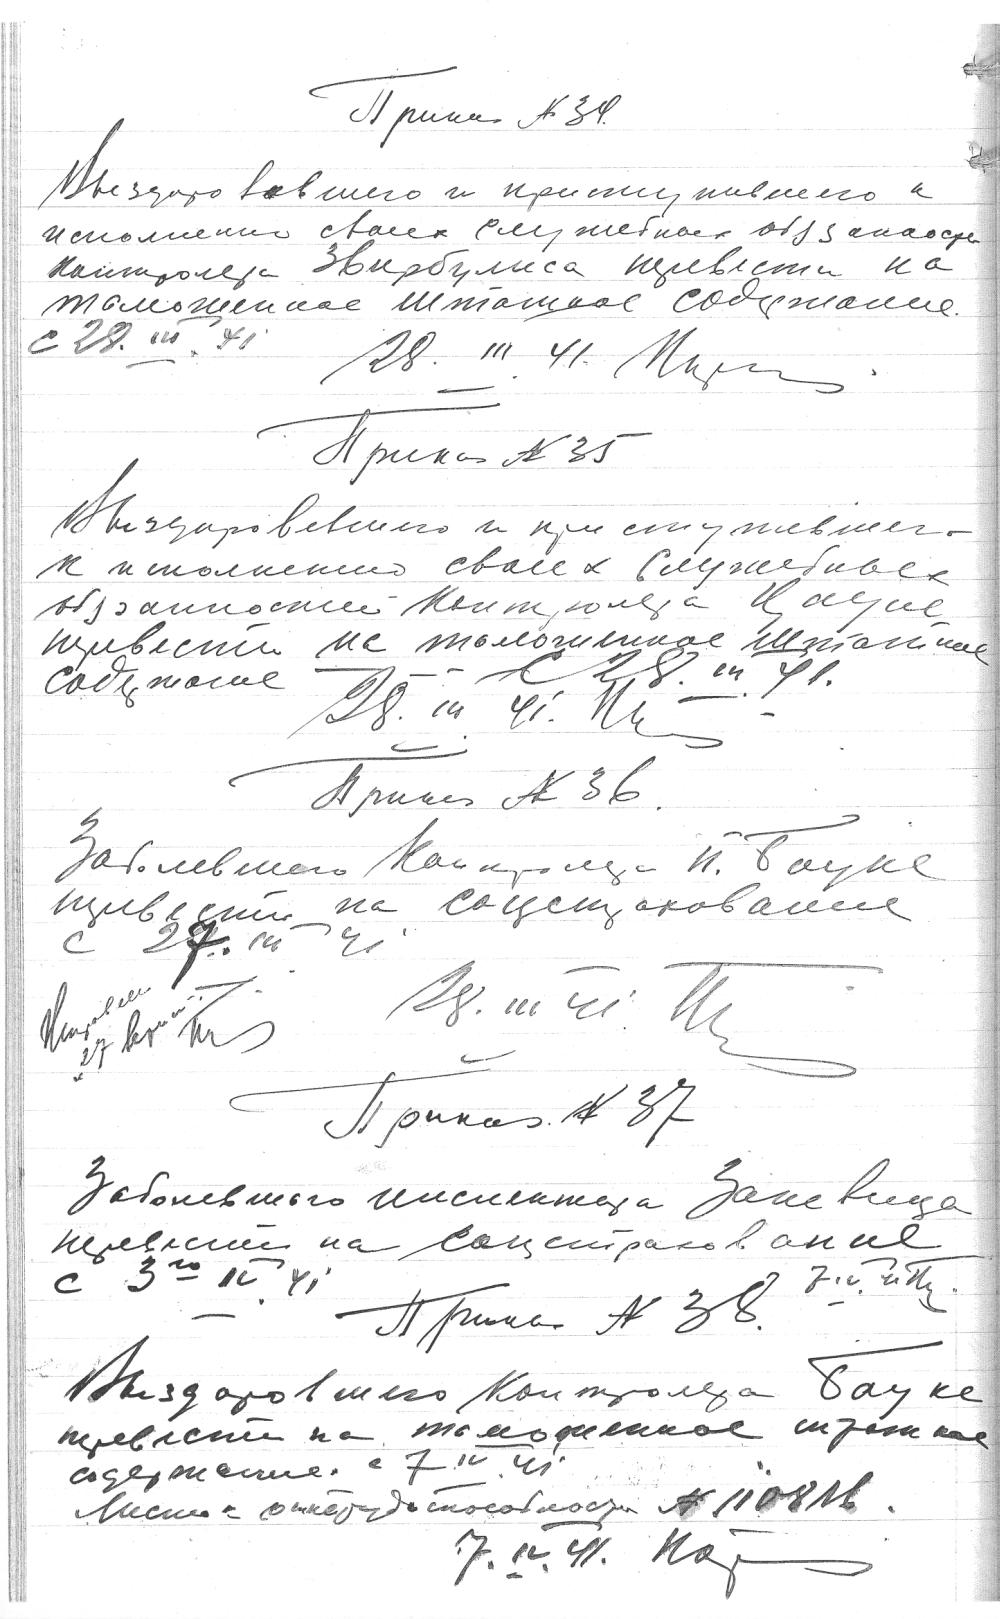 Приказ № 34.
Выздоровевшего и приступившего к
исполнению своих служебных обязанностей
контролера Звирбулиса перевести на
таможенное штатное содержание.
с 28. III. 41
28. III. 41.
Приказ № 35
Выздоровевшего и приступившего
к исполнению своих служебных
обязанностей контролера
перевести на таможенное штатное
содержание с 28. III. 41.
28. III. 41.
Приказ № 36.
Заболевшего контролера П. Бауке
перевести на соцстрахование
с 27. III 41
28. III 41.
Приказ № 37
Заболевшего инспектора Заневица
перевести на соцстрахование
с 3го IV. 41
7. IV. 41
Приказ № 38.
Выздоровшего контролера Бауке
перевести на таможенное штатное
содержание. с 7 IV. 41
№ 11081
7. IV. 41.